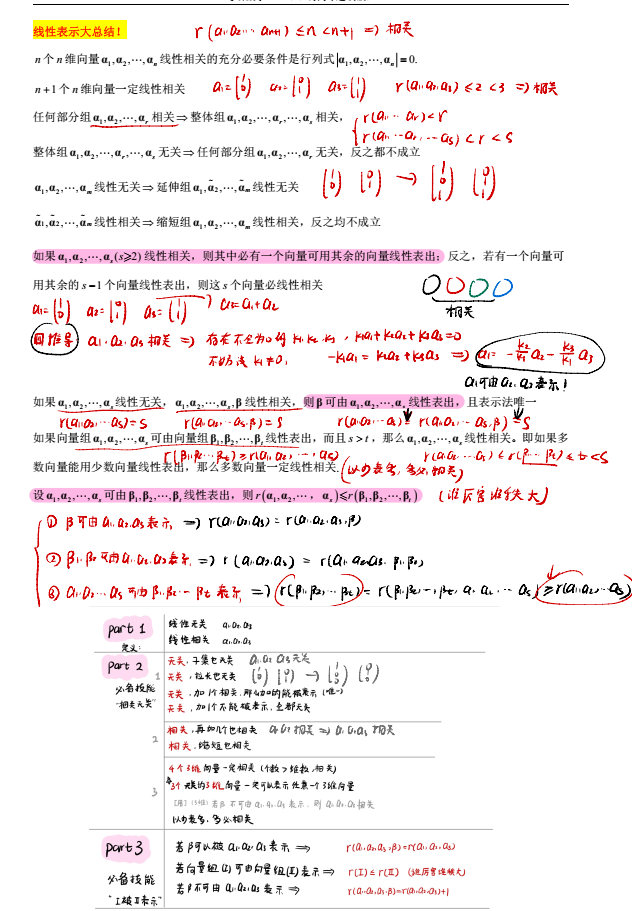 线性表示大总结!
r(a₁,a₂,⋯aₙ₊₁)≤n<n+1 ⇒ 相关
n 个 n 维向量 α₁,α₂,⋯,αₙ 线性相关的充分必要条件是行列式|α₁,α₂,⋯,αₙ|=0.
n+1个 n 维向量一定线性相关 a₁=(1 0) a₂=(0 1) a₃=(1 1) r(a₁,a₂,a₃)≤2<3 ⇒相关
任何部分组 α₁,α₂,⋯,αᵣ 相关⇒整体组 α₁,α₂,⋯,αᵣ,⋯,αₛ 相关, r(a₁⋯aᵣ)<r
r(a₁⋯aᵣ,⋯aₛ)<r<s
整体组 α₁,α₂,⋯,αᵣ,⋯,αₛ 无关⇒任何部分组 α₁,α₂,⋯,αᵣ 无关, 反之都不成立
α₁,α₂,⋯,αₘ 线性无关⇒延伸组 α̃₁,α̃₂,⋯,α̃ₘ 线性无关
α̃₁,α̃₂,⋯,α̃ₘ 线性相关⇒缩短组 α₁,α₂,⋯,αₘ 线性相关, 反之均不成立
如果 α₁,α₂,⋯,αₛ(s⩾2) 线性相关, 则其中必有一个向量可用其余的向量线性表出; 反之, 若有一个向量可
用其余的 s−1 个向量线性表出, 则这 s 个向量必线性相关
相关
a₁=(1 0) a₂=(0 1) a₃=(1 1) a₃=a₁+a₂
a₁,a₂,a₃ 相关 ⇒ 存在不全为0的 k₁,k₂,k₃, k₁a₁+k₂a₂+k₃a₃=0
不妨设 k₁≠0, −k₁a₁=k₂a₂+k₃a₃ ⇒ a₁=−k₂/k₁ a₂−k₃/k₁ a₃
a₁可由a₂,a₃表示!
如果 α₁,α₂,⋯,αₛ 线性无关, α₁,α₂,⋯,αₛ,β 线性相关, 则 β 可由 α₁,α₂,⋯,αₛ 线性表出, 且表示法唯一
r(a₁,a₂⋯aₛ)=s r(a₁,a₂,⋯aₛ,β)=s r(a₁,a₂⋯aₛ)=r(a₁,a₂⋯aₛ,β)=s
如果向量组 α₁,α₂,⋯,αₛ 可由向量组 β₁,β₂,⋯,βₜ 线性表出, 而且 s>t, 那么 α₁,α₂,⋯,αₛ 线性相关. 即如果多
r(β₁,β₂⋯βₜ)≥r(a₁,a₂,⋯,aₛ) r(a₁,a₂,⋯aₛ)≤r(β₁⋯βₜ)≤t<s
数向量能用少数向量线性表出, 那么多数向量一定线性相关. (以少表多, 多必相关)
设 α₁,α₂,⋯,αₛ 可由 β₁,β₂,⋯,βₜ 线性表出, 则 r(α₁,α₂,⋯,αₛ)⩽r(β₁,β₂,⋯,βₜ) (谁厉害谁秩大)
① β可由a₁,a₂,a₃表示 ⇒ r(a₁,a₂,a₃)=r(a₁,a₂,a₃,β)
② β₁,β₂可由a₁,a₂,a₃表示 ⇒ r(a₁,a₂,a₃)=r(a₁,a₂,a₃,β₁,β₂)
③ a₁,a₂⋯aₛ可由β₁,β₂⋯βₜ表示 ⇒ r(β₁,β₂,⋯βₜ)=r(β₁,β₂,⋯,βₜ,a₁,a₂⋯aₛ)≥r(a₁,a₂,⋯aₛ)
part 1
定义:
线性无关 a₁,a₂,a₃
线性相关 a₁,a₂,a₃
part 2
必备技能
"相关无关"
1
无关, 子集也无关 a₁,a₂,a₃无关
无关, 拉长也无关
无关, 加1个相关, 那么加的能被表示 (唯一)
无关, 加1个不能被表示, 全部无关
2
相关, 再加几个也相关 a₁,a₂相关 ⇒ a₁,a₂,a₃相关
相关, 缩短也相关
3
4个3维向量一定相关 (个数>维数, 相关)
3个无关的3维向量一定可以表示任意一个3维向量
[用] (3维) 若β不可由a₁,a₂,a₃表示, 则a₁,a₂,a₃相关
以少表多, 多必相关
part 3
必备技能
"I被II表示"
若β可以被a₁,a₂,a₃表示 ⇒ r(a₁,a₂,a₃,β)=r(a₁,a₂,a₃)
若向量组(I)可由向量组(II)表示 ⇒ r(I)≤r(II) (谁厉害谁秩大)
若β不可由a₁,a₂,a₃表示 ⇒ r(a₁,a₂,a₃,β)=r(a₁,a₂,a₃)+1